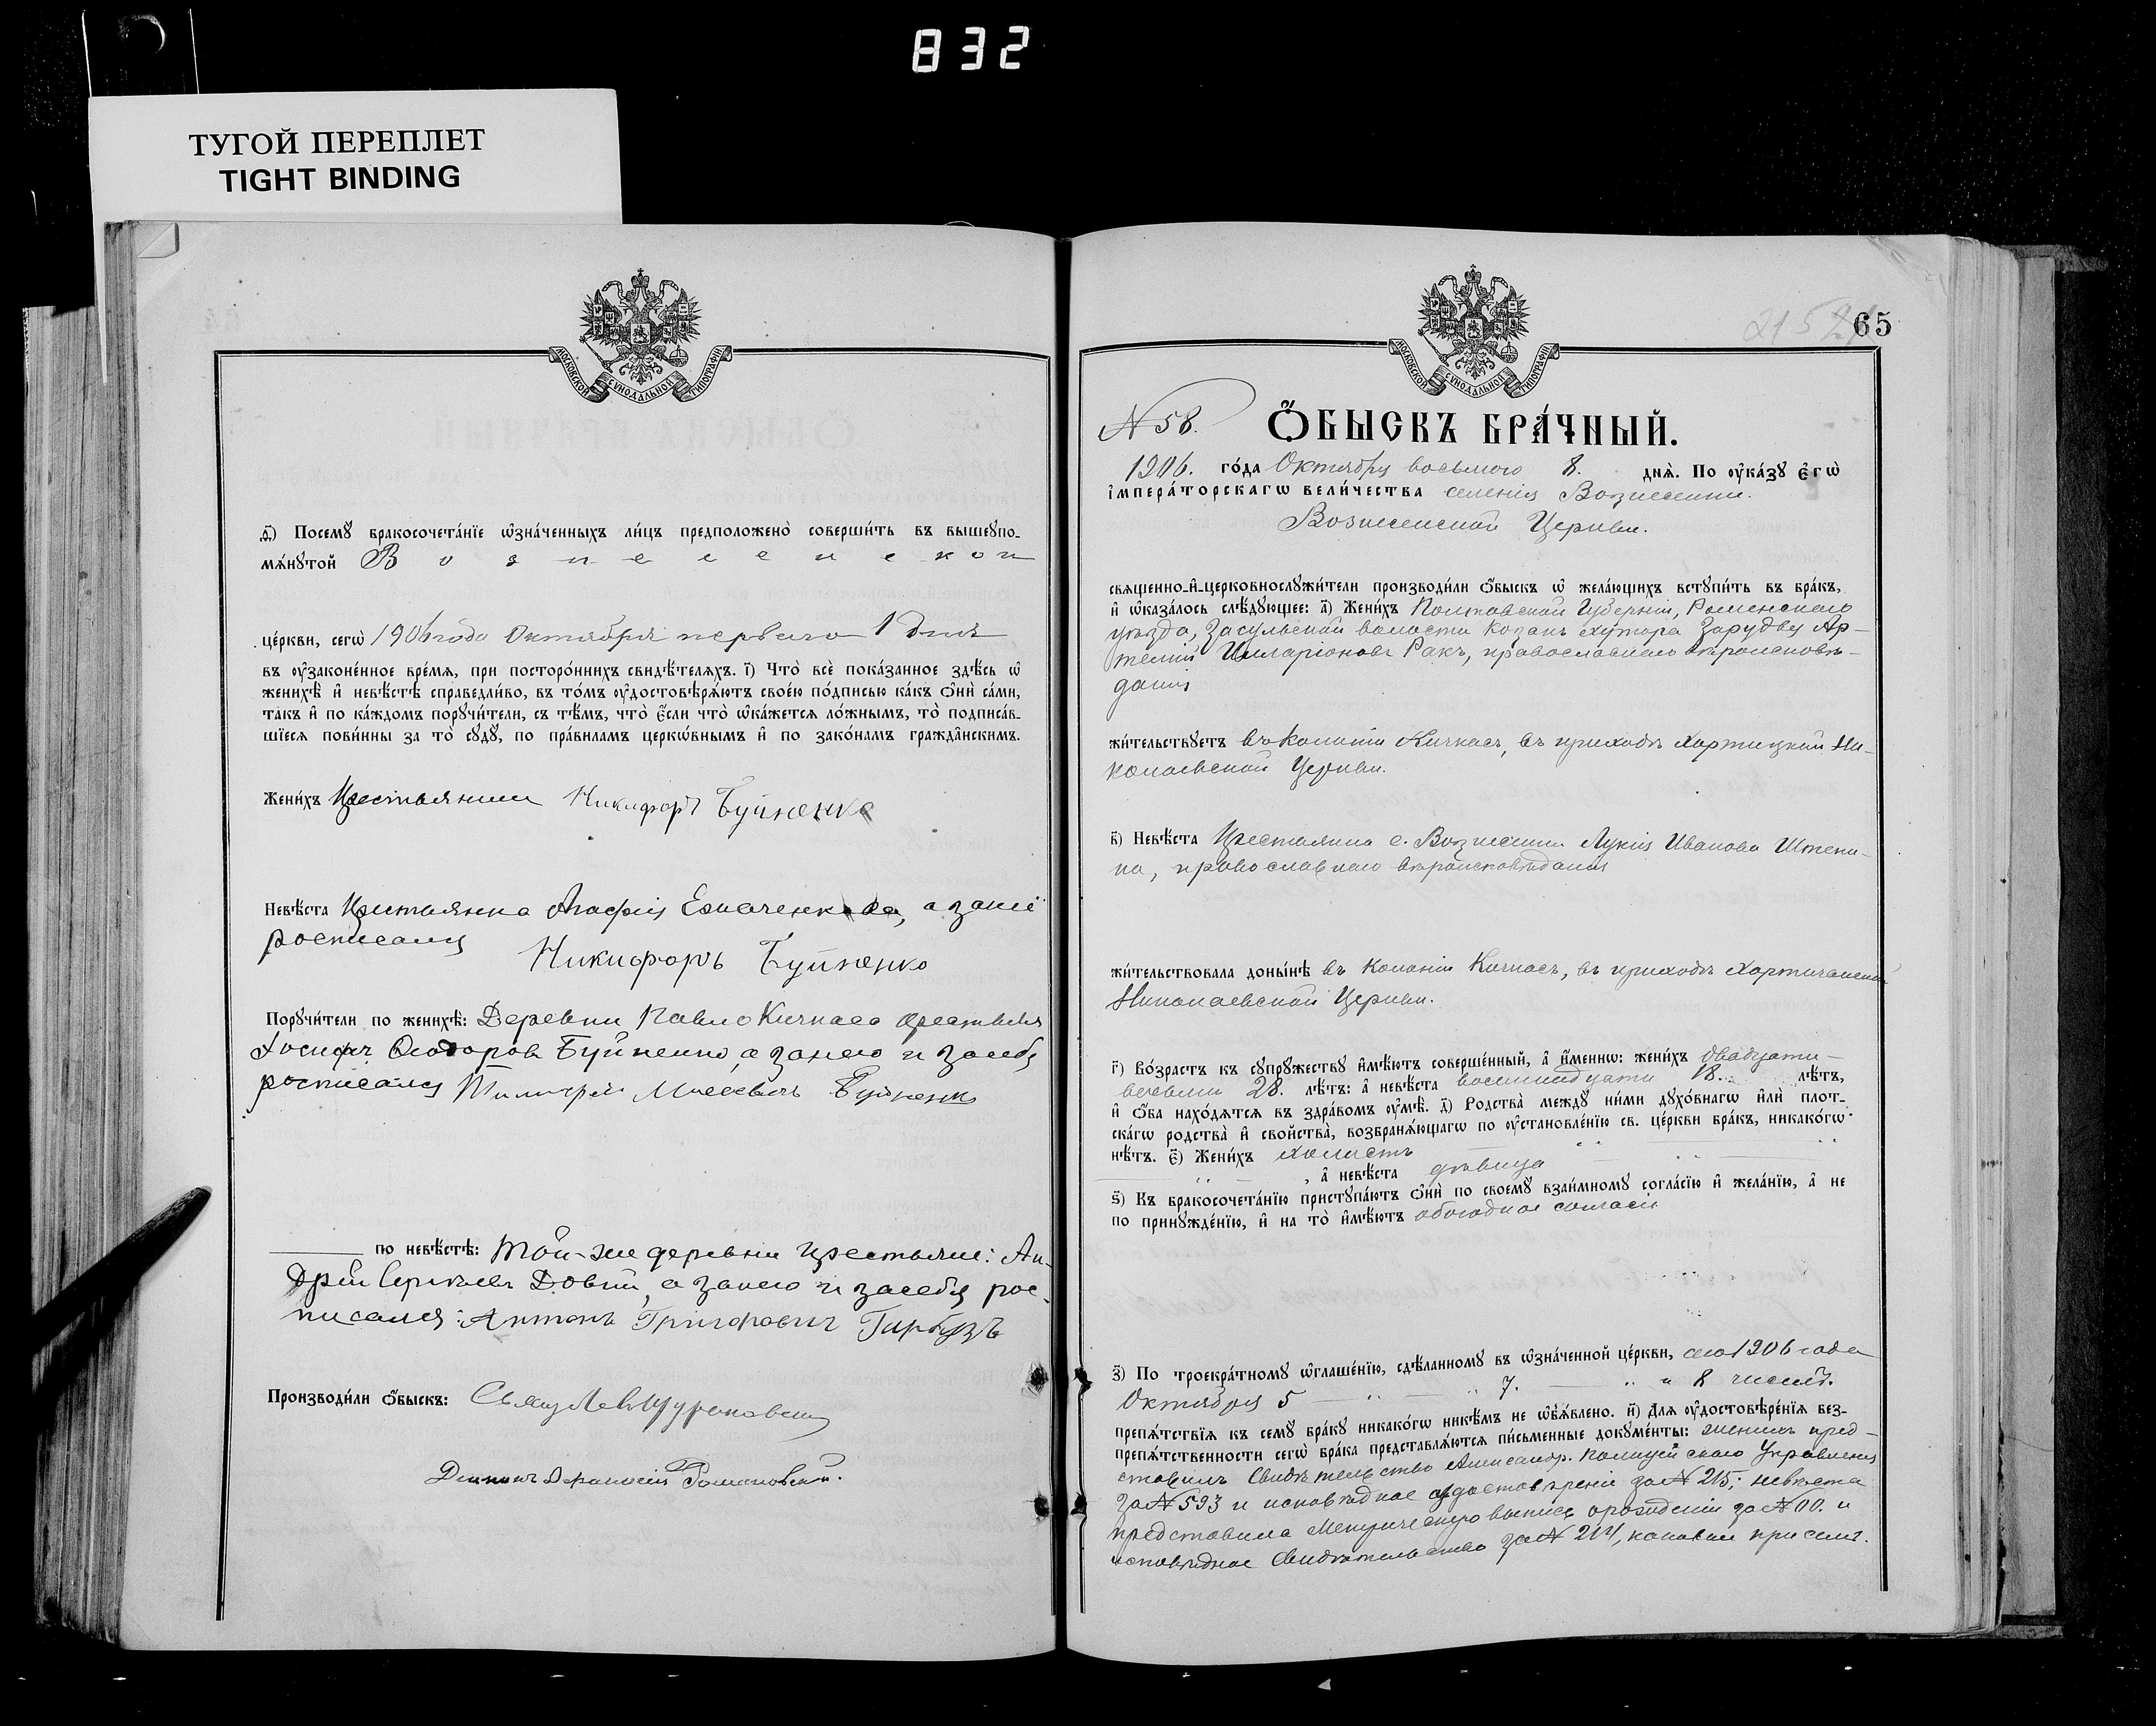 832
ТУГОЙ ПЕРЕПЛЕТ
TIGHT BINDING
МОСКОВСКОЙ СѴНОДАЛЬНОЙ ТИПОГРАФІИ
ѳ҃) Посемꙋ бракосочета́нїе ѡ҆зна́ченныхъ ли́цъ предположено̀ соверши́ть въ вышеꙋпо-
мѧ́нꙋтой Вознесенской
це́ркви, сегѡ̀ 1906 года Октября перваго 1 дня
въ ᲂу҆законе́нное вре́мѧ, при посторо́ннихъ свидѣ́телѧхъ. і҃) Что̀ всѐ пока́занное здѣ́сь ѡ҆
женихѣ̀ и҆ невѣ́стѣ справедли́во, въ то́мъ ᲂу҆достовѣрѧ́ютъ свое́ю по́дписью ка́къ ѻ҆нѝ са́ми,
та́къ и҆ по ка́ждомъ порꙋчи́тели, съ тѣ́мъ, что̀ є҆́сли что̀ ѡ҆ка́жетсѧ ло́жнымъ, то̀ подписа́в-
шїесѧ пови́нны за то̀ сꙋдꙋ̀, по пра́виламъ церкѡ́внымъ и҆ по зако́намъ гражда́нскимъ.
Жени́хъ Крестьянинъ Никифоръ Буйненко
Невѣ́ста Крестьянка Агафія а за нее
росписался Никифоръ Буйненко
Порꙋчи́тели по женихѣ̀: Деревни Павло Кичкаса крестьяне
Іосифъ Ѳеодоровъ Буйненко, а за него и за себя
росписался Буйненко
по невѣ́стѣ: Той-же деревни крестьяне: Ан-
дрей Сергіевъ Довгій, а за него и за себя рос-
писался: Антонъ Григоровичъ Гарбузъ
Производи́ли ѻ҆́быскъ: Священ. Лев
Романовскій.
65
МОСКОВСКОЙ СѴНОДАЛЬНОЙ ТИПОГРАФІИ
N 58. Ѻ҆́БЫСКЪ БРА́ЧНЫЙ.
1906. го́да Октября восьмого 8. днѧ̀. По ᲂу҆ка́зꙋ є҆гѡ̀
і҆мпера́торскагѡ вели́чества селенія Вознесенки
Вознесенской Церкви.
свѧщенно-и҆-церковнослꙋжи́тели производи́ли ѻ҆́быскъ ѡ҆ жела́ющихъ встꙋпи́ть въ бра́къ,
и҆ ѡ҆каза́лось слѣ́дꙋющее: а҃) Жени́хъ Полтавской Губерніи, Роменскаго
уѣзда, Засульской волости козакъ хутора Зарудья Ар-
темій Иларіоновъ Ракъ, православнаго вѣроисповѣ-
данія
жи́тельствꙋетъ въ колоніи Кичкасъ, въ приходѣ Хортицкой Ни-
колаевской Церкви.
в҃) Невѣ́ста Крестьянка с. Вознесенки Лукія Иванова
православнаго вѣроисповѣданія
жи́тельствовала доны́нѣ въ колоніи Кичкасъ, въ приходѣ
Николаевской Церкви.
г҃) Во́зрастъ къ сꙋпрꙋ́жествꙋ и҆мѣ́ютъ соверше́нный, а҆ и҆́меннѡ: жени́хъ двадцати-
восьми 28. лѣ́тъ: а҆ невѣ́ста восемнадцати 18. лѣ́тъ,
и҆ ѻ҆́ба нахо́дѧтсѧ въ здра́вомъ ᲂу҆мѣ̀. д҃) Родства̀ междꙋ̀ ни́ми дꙋхо́внагѡ и҆лѝ плот-
ска́гѡ родства̀ и҆ сво́йства, возбранѧ́ющагѡ по ᲂу҆становле́нїю св. це́ркви бра́къ, никако́гѡ
нѣ́тъ. є҃) Жени́хъ холостъ
, а҆ невѣ́ста дѣвица
ѕ҃) Къ бракосочета́нїю пристꙋпа́ютъ ѻ҆нѝ по своемꙋ̀ взаи́мномꙋ согла́сїю и҆ жела́нїю, а҆ не
по принꙋжде́нїю, и҆ на то̀ и҆мѣ́ютъ обоюдное согласіе
з҃) По троекра́тномꙋ ѡ҆глаше́нїю, сдѣ́ланномꙋ въ ѡ҆зна́ченной це́ркви, сего 1906 года
Октября 5 7. и 8 чиселъ.
препѧ́тствїѧ къ семꙋ̀ бра́кꙋ никако́гѡ никѣ́мъ не ѡ҆б̾ѧ́влено. и҃) Длѧ ᲂу҆достовѣре́нїѧ без-
препѧ́тственности сегѡ̀ бра́ка представлѧ́ютсѧ пи́сьменные докꙋме́нты: женихъ пред-
ставилъ Свидѣтельство Александр. Полицейскаго Управленія
за N 593 и исповѣдное удостовѣреніе за N 215; невѣста
представила Метрическую выпись о рожденіи за N и
исповѣдное Свидѣтельство за N 214,